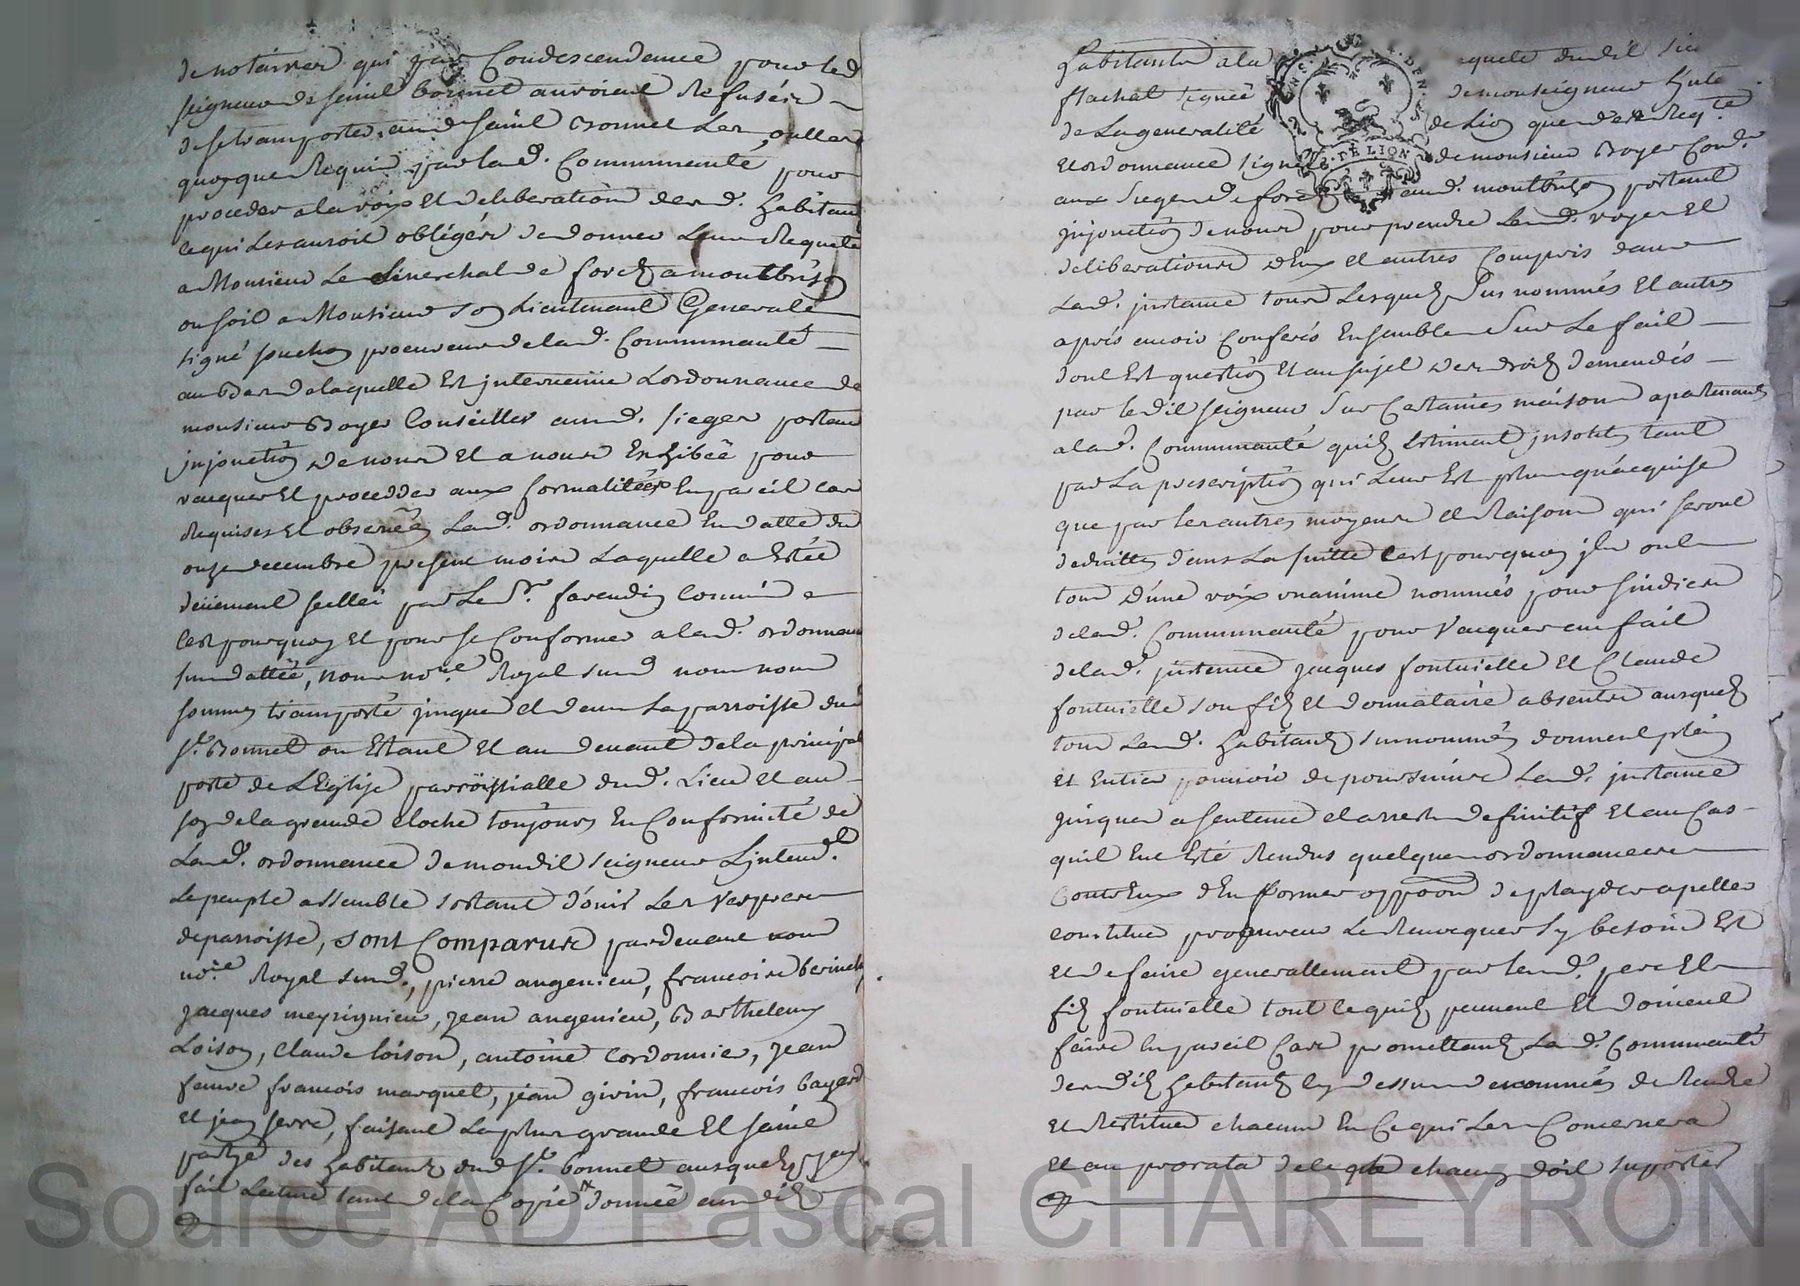 de notaires qui par Condescendance pour led
seigneur de sainct bonnet auroient Refusés
de se transporter aud sainct Bonnet Les oulles
quoyque Requis par lad. Communauté pour
proceder a la voix et deliberation desd. habitans
ce qui Les auroit obligés de donner Leur Requete
a Monsieur Le Senechal de forez a montbrison
ou soit a Monsieur son Lieutenant General
signé souchon procureur de lad. Communauté
au bas de laquelle Est intervenue Lordonnance de
monsieur Boyer Conseiller aud. sieger portant
injonction de nous Et a nous Exhibée pour
vacquer Et procedder aux formalités En pareil cas
Requises Et observées Lad. ordonnance En datte du
onze decembre present mois Laquelle a Estée
deüement scellée par Le Sr. farendin Commis
C'est pourquoy Et pour se Conformer a lad. ordonnance
susdattée, nous nore. Royal susd nous nous
sommes transporté jusques et dans La parroisse dud
St. Bonnet ou Etant Et au devant de la principal
porte de L'Eglise parroissialle dud. Lieu Et au
son de la grande cloche toujours En Conformité de
Lad. ordonnance de mondit seigneur L'intend.t
Le peuple assemblé sortant d'ouir Les Vespres
de parroisse, sont Comparus pardevant nous
nore. Royal susd., pierre angenieu, francois berinel,
jacques meyrignieu, jean angenieu, Barthelemy
Loison, Claude loison, antoine Cordonnier, jean
faure francois marquet, jean givin, francois bayard
Et jean serre, faisant La plus grande Et saine
partye des habitants dud St. bonnet ausquels ayant
fait Lecture tant de la Copie donnée ausdits
habitants a la Requete dudit sieur
flachat signée de monseigneur L'inte
de La generalité de Lion que desd. Reqte
Et ordonnance signée de monsieur Boyer Conser
aux Sieges de forez aud. montbrison portant
injonction de nous pour prendre Lesd. voyes Et
deliberations d'eux Et autres Compris dans
Lad. instance tous Lesquels sus nommés Et autres
aprés avoir Conferés Ensemble Sur Le fait
dont Est question Et au sujet des droits demendés
par ledit seigneur Sur Certaines maisons apartenants
a lad. Communauté quils Estiment insolites tant
par La prescription qui Leur Est plus qu'acquise
que par les autres moyens Et Raisons qui seront
deduittes dans La suitte C'est pourquoy ils ont
tous d'une voix unanime nommés pour sindics
de lad. Communauté pour Vacquer au fait
de lad. instance jacques fontvielle Et Claude
fontvielle son fils Et donnataire absents ausquels
tous Lesd. habitants susnommés donnent plein
Et Entier pouvoir de poursuivre Lad. instance
jusques a sentence et arrest definitif Et au Cas
quil Eut Esté Rendus quelques ordonnances
Contr'Eux d'En former oppoon de playder apeller
constituer procureur Le Revocquer s'y besoin Est
Et de faire generallement par lesd. pere Et
fils fontvielle tout ce quils peuvent Et doivent
faire En pareil Cas promettants Lad. Communauté
desdits habitants Cy dessus denommés de Rendre
Et Restituer chacun En Ce qui Les Concernera
Et au prorata de ce que chacun doit suporter
DE LION
Source AD Pascal CHAREYRON